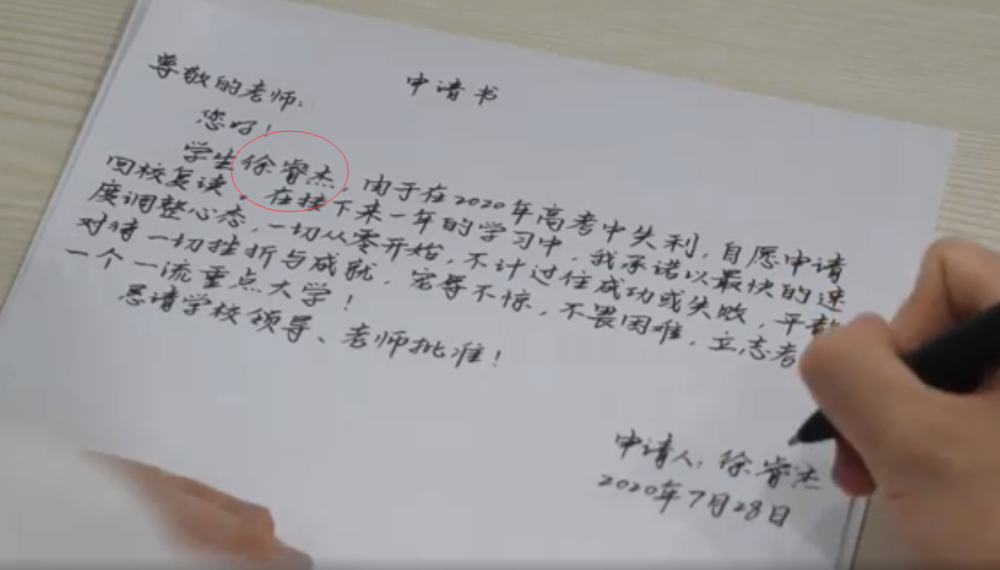 申请书
尊敬的老师：
您好！
学生徐睿杰，由于在2020年高考中失利，自愿申请
回校复读。在接下来一年的学习中，我承诺以最快的速
度调整心态，一切从零开始，不计过往成功或失败，平静
对待一切挫折与成就，宠辱不惊，不畏困难，立志考
一个一流重点大学！
恳请学校领导、老师批准！
申请人：徐睿杰
2020年7月28日